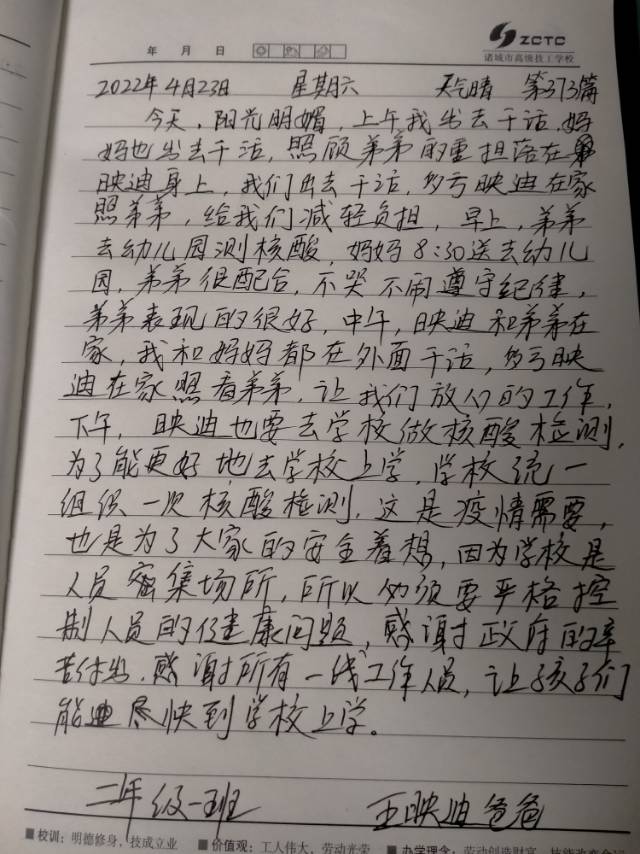 ZCTC
年 月 日
诸城市高级技工学校
2022年4月23日 星期六 天气晴 第373篇
今天,阳光明媚,上午我出去干活,妈
妈也出去干活,照顾弟弟的重担落在
映迪身上,我们出去干活,多亏映迪在家
照弟弟,给我们减轻负担,早上,弟弟
去幼儿园测核酸,妈妈8:30送去幼儿
园,弟弟很配合,不哭不闹遵守纪律,
弟弟表现的很好,中午,映迪和弟弟在
家,我和妈妈都在外面干活,多亏映
迪在家照看弟弟,让我们放心的工作,
下午,映迪也要去学校做核酸检测,
为了能更好地去学校上学,学校统一
组织一次核酸检测,这是疫情需要,
也是为了大家的安全着想,因为学校是
人员密集场所,所以必须要严格控
制人员的健康问题,感谢政府的辛
苦付出,感谢所有一线工作人员,让孩子们
能尽快到学校上学。
二年级一班 王映迪爸爸
■校训:明德修身,技成立业 ■价值观:工人伟大,劳动光荣 ■办学理念:劳动创造财富